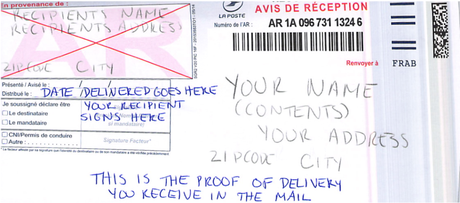 En provenance de :
RECIPIENTS NAME
RECIPIENTS ADDRESS
ZIPCODE CITY
LA POSTE
AVIS DE RÉCEPTION
Numéro de l'AR :
AR 1A 096 731 1324 6
Renvoyer à
FRAB
Présenté / Avisé le :
Distribué le :
DATE DELIVERED GOES HERE
Je soussigné déclare être
Le destinataire
Le mandataire
CNI/Permis de conduire
Autre :
YOUR RECIPIENT
SIGNS HERE
Signature Facteur*
YOUR NAME
(CONTENTS)
YOUR ADDRESS
ZIPCODE CITY
THIS IS THE PROOF OF DELIVERY
YOU RECEIVE IN THE MAIL